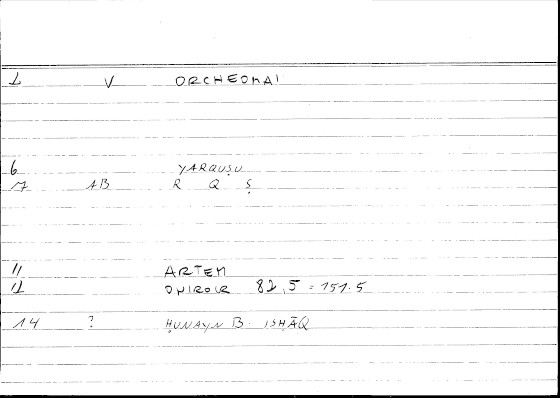 1 V ORCHEOMAI
6 YARQUṢU
7 AB R Q Ṣ
11 ARTEM
12 ONIROCR 82,5 = 151.5
14 ? ḤUNAYN B. ISḤĀQ